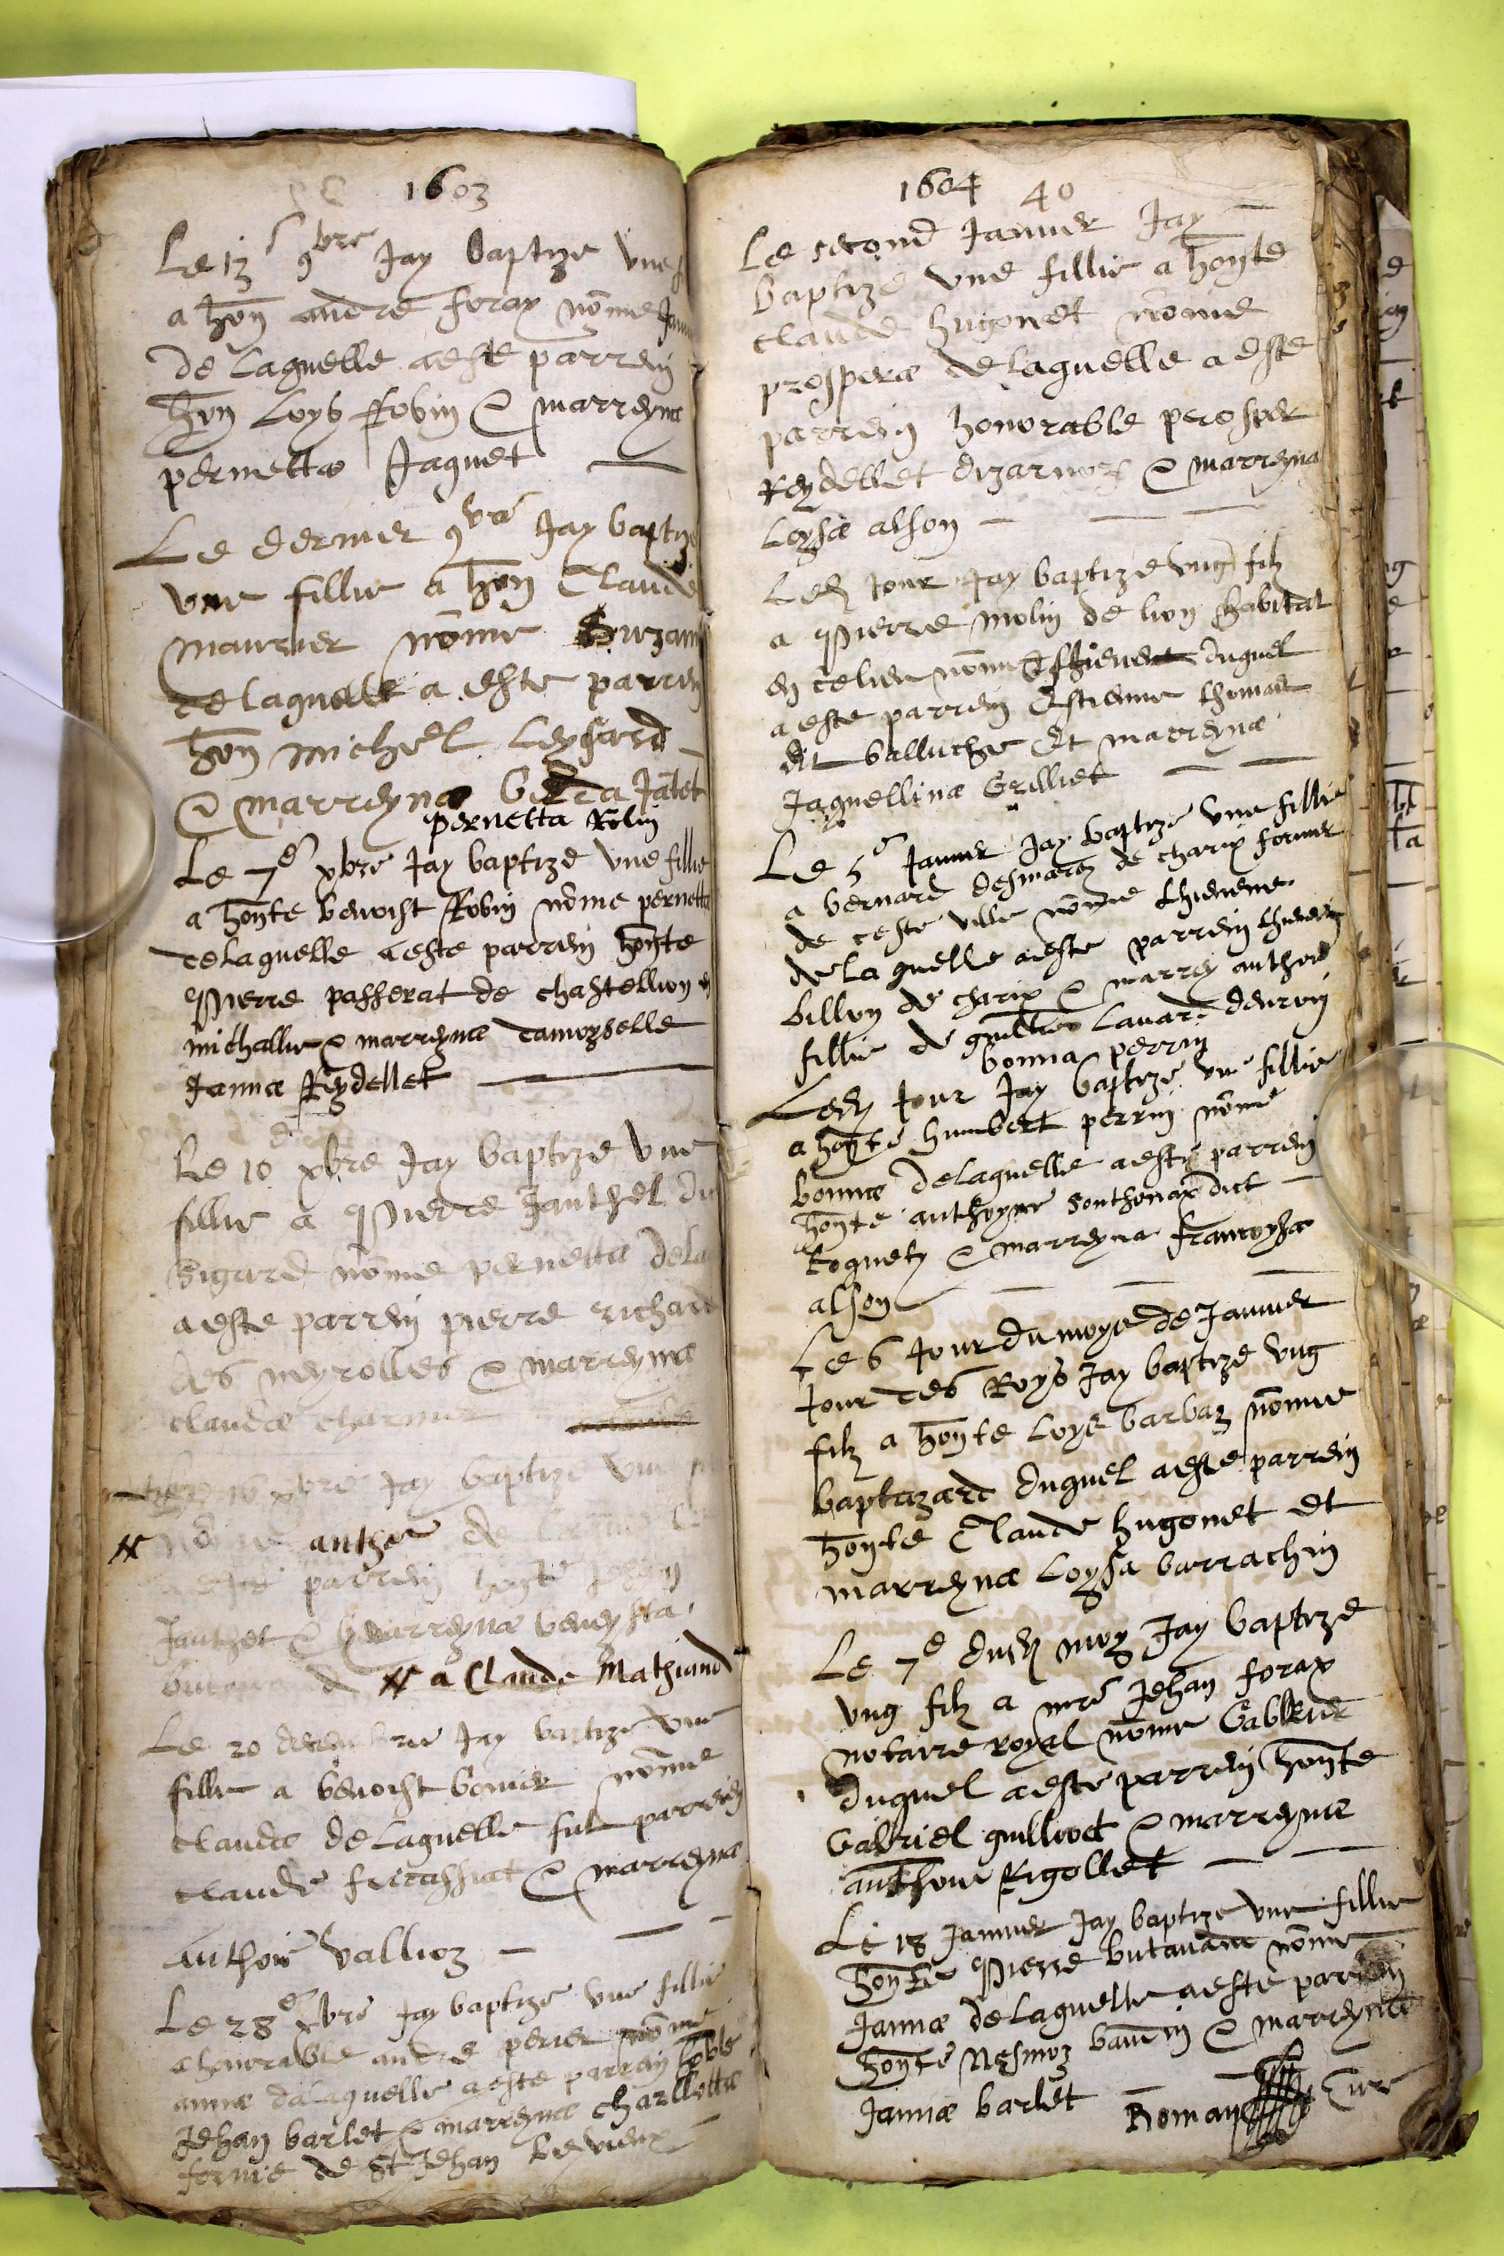 1603
Le 13 9bre Jay baptize une
a hon andre forax nōme
de laquelle a este parrein
hon Loys Robin & marreyna
pernetta Jaquet
Le dernier 9bre Jay baptize
une fillie a hon Claude
maurier nōme Suzan
de laquelle a este parrein
hon michel Leysard
& marreyna
pernetta Rolin
Le 7e xbre Jay baptize une fillie
a honte benoist Robin nōme pernetta
de laquelle a este parrein honste
Pierre passerat de chastellion
michallie & marreyna damoyselle
Janna Reydellet
Le 10 xbre Jay baptize une
fillie a Pierre Janthel du
Sigard nōme pernetta dela
a este parrein pierre richard
des neyrolles & marreyna
clauda charnier
16 xbre Jay baptize une
anthoe de
este parrein honte
Janthet & marreyna beneysta
a Claude Mathiand
Le 20 decembre Jay baptize une
fillie a benoist bonier nōme
clauda de laquelle fut parrein
claude fricassiat & marreyna
anthoie vallioz
Le 28e xbre Jay baptize une fillie
a honorable andre perier nōme
anna de laquelle a este parrein hoble
Jehan barlet & marreyna charllotta
fornie de St Jehan le vieux
1604 40
Le second Janvier Jay
baptize une fillie a honte
claude hugonet nōme
prospera de laquelle a este
parrein honorable perosper
Reydellet dizarnoz & marreyna
Loysa alson
Led Jour Jay baptize ung filz
a Pierre molin de lion habitat
en ce lieu nōme duquel
a este parrein Estienne thomas
dit balluche Et marreyna
Jaquellina Grilliet
Le 5e Janvier Jay baptize une fillie
a bernard desmarez de charix fornier
de ceste ville nōme thievene
de la quelle a este parrein thievein
billon de charix & marrey anthoie
fillie de Lavard
bonna perrin
Led Jour Jay baptize une fillie
a honte humbert perrin nōme
bonna de laquelle a este parrein
honte anthoyne Sonthonax dict
Roquet & marreyna francoysa
alson
Le 6 Jour du moys de Janvier
Jour des Roys Jay baptize ung
filz a honte Loys barbaz nōme
baptazard duquel a este parrein
honte Claude hugonet Et
marreyna Loysa barrachin
Le 7e dud moy Jay baptize
ung filz a mre Jehan forax
notaire royal nōme Gabriel
duquel a este parrein honte
Gabriel guilliot & marreyna
anthoie Rigollet
Le 18 Janvier Jay baptize une fillie
honte Pierre butavand nōme
Janna de laquelle a este parrein
honte Nesmoz & marreyna
Janna barlet Roman Cure